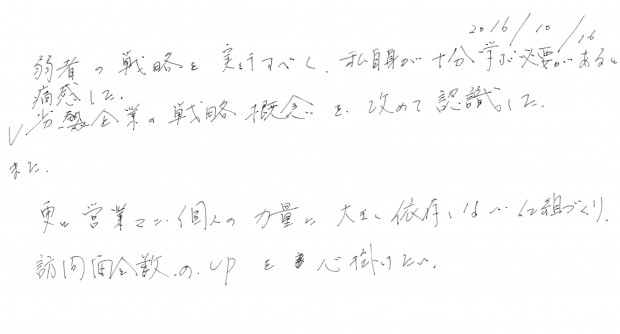 2016/10/16
弱者の戦略を実行すべく、私自身が十分学ぶ必要があると
痛感した。
劣勢企業の戦略概念を改めて認識した。
また、
更に営業マン個人の力量に大きく依存しない仕組づくり、
訪問面会数のupを心掛けたい。